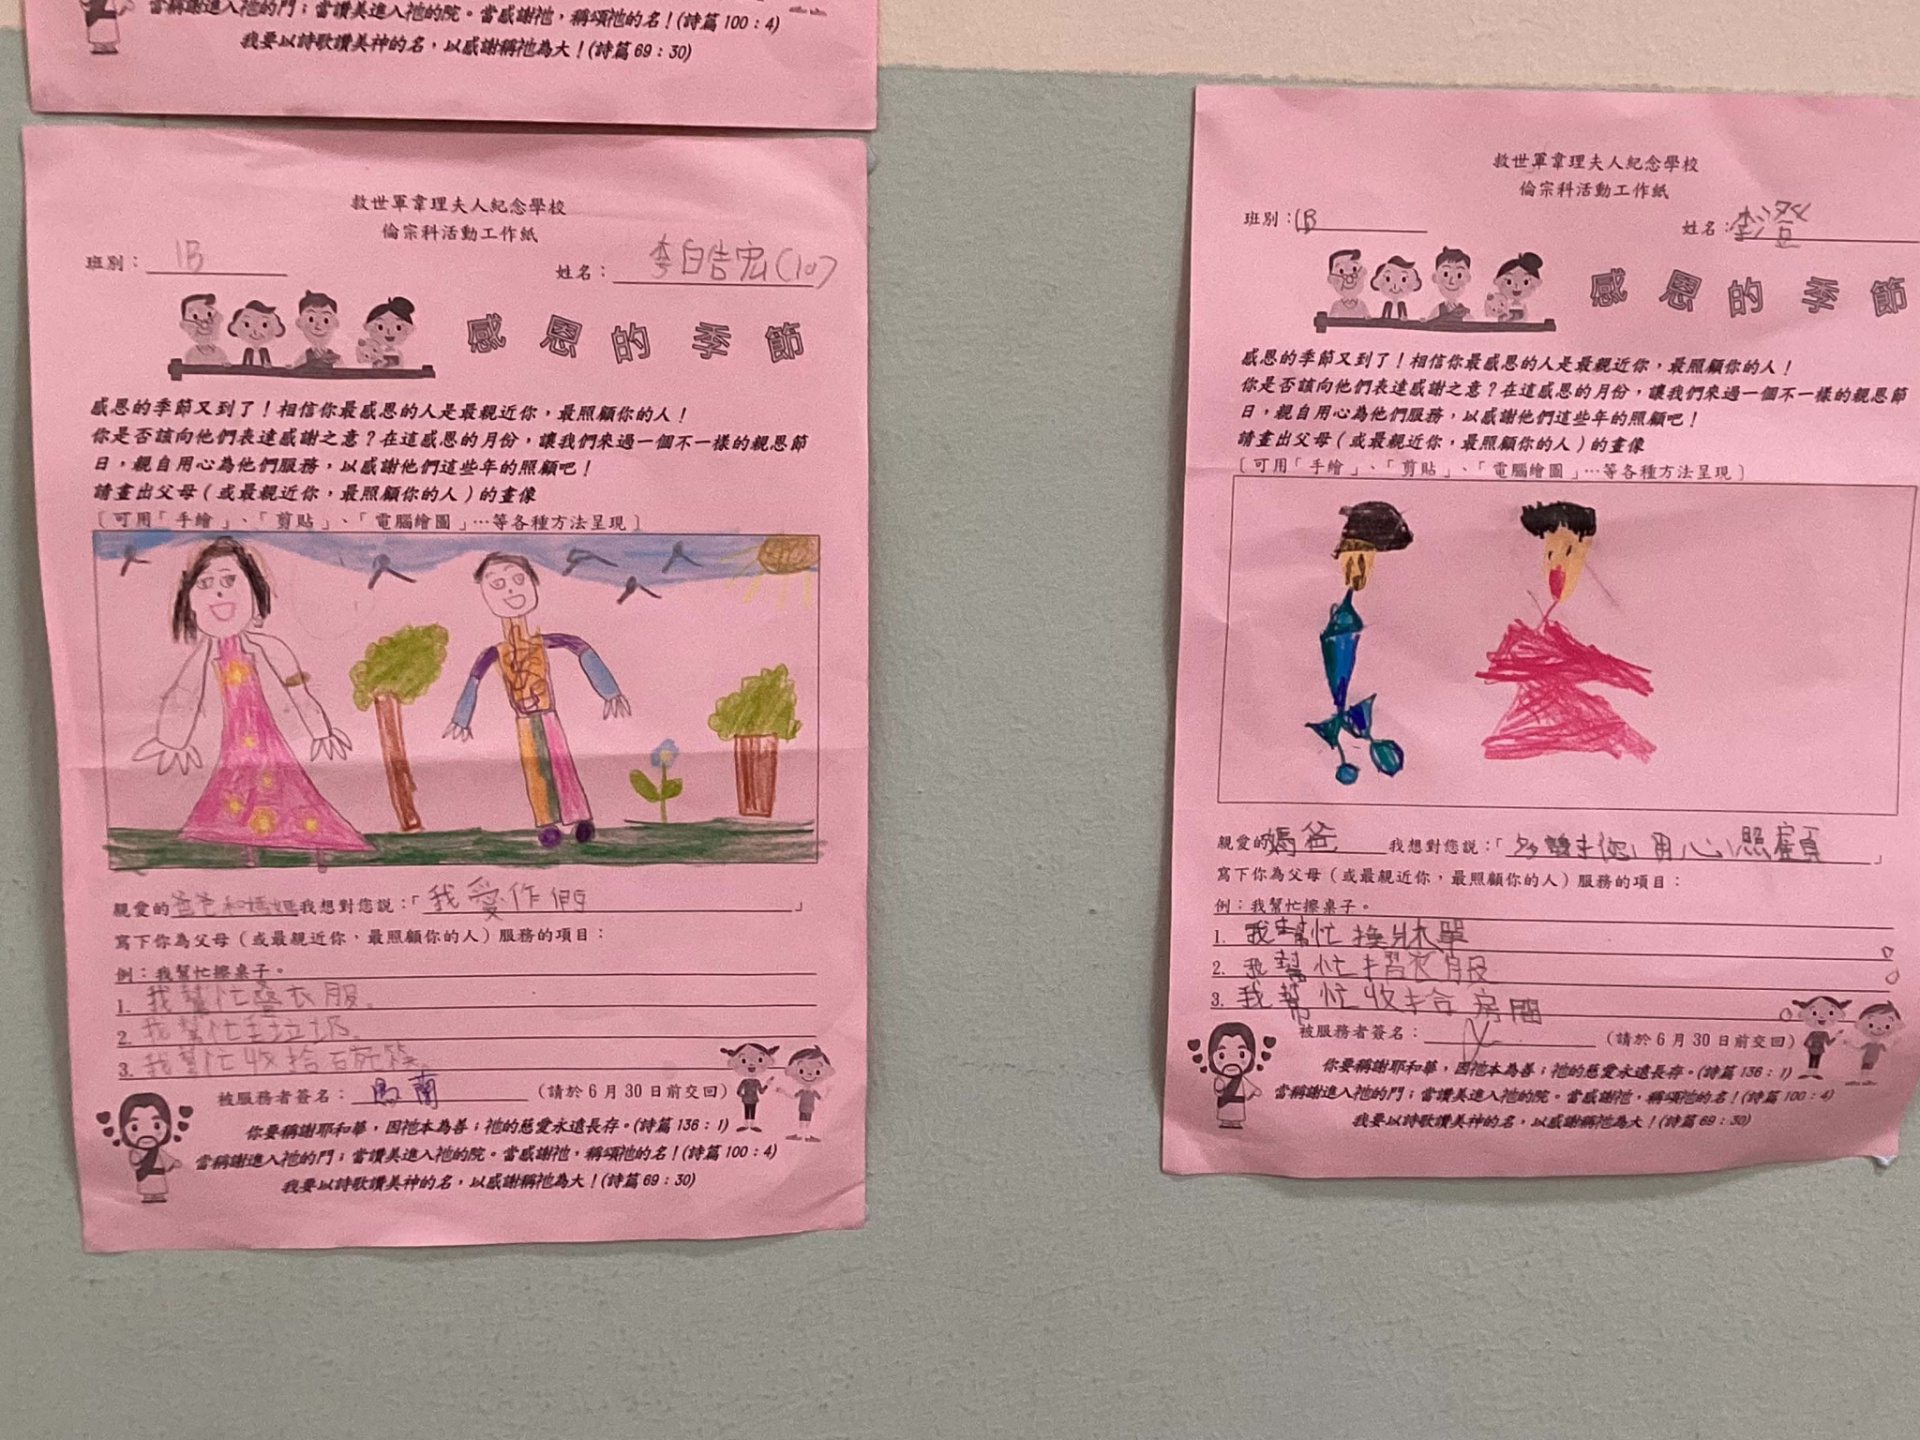 當稱謝進入祂的門；當讚美進入祂的院。當感謝祂，稱頌祂的名！(詩篇 100：4)
我要以詩歌讚美神的名，以感謝稱祂為大！(詩篇 69：30)
救世軍韋理夫人紀念學校
倫宗科活動工作紙
班別：1B 姓名：李皓宏(10)
感恩的季節
感恩的季節又到了！相信你最感恩的人是最親近你，最照顧你的人！
你是否該向他們表達感謝之意？在這感恩的月份，讓我們來過一個不一樣的親恩節
日，親自用心為他們服務，以感謝他們這些年的照顧吧！
請畫出父母（或最親近你，最照顧你的人）的畫像
〔可用「手繪」、「剪貼」、「電腦繪圖」…等各種方法呈現〕
親愛的爸爸和媽媽我想對您說：「我愛你們」
寫下你為父母（或最親近你，最照顧你的人）服務的項目：
例：我幫忙擦桌子。
1. 我幫忙疊衣服。
2. 我幫忙垃圾。
3. 我幫忙收拾碗筷。
被服務者簽名： （請於 6 月 30 日前交回）
你要稱謝耶和華，因祂本為善；祂的慈愛永遠長存。(詩篇 136：1)
當稱謝進入祂的門；當讚美進入祂的院。當感謝祂，稱頌祂的名！(詩篇 100：4)
我要以詩歌讚美神的名，以感謝稱祂為大！(詩篇 69：30)
救世軍韋理夫人紀念學校
倫宗科活動工作紙
班別：1B 姓名：李澄
感恩的季節
感恩的季節又到了！相信你最感恩的人是最親近你，最照顧你的人！
你是否該向他們表達感謝之意？在這感恩的月份，讓我們來過一個不一樣的親恩節
日，親自用心為他們服務，以感謝他們這些年的照顧吧！
請畫出父母（或最親近你，最照顧你的人）的畫像
〔可用「手繪」、「剪貼」、「電腦繪圖」…等各種方法呈現〕
親愛的媽爸我想對您說：「多謝你用心照顧」
寫下你為父母（或最親近你，最照顧你的人）服務的項目：
例：我幫忙擦桌子。
1. 我幫忙換牀單。
2. 我幫忙摺衣服。
3. 我幫忙收拾房間。
被服務者簽名： （請於 6 月 30 日前交回）
你要稱謝耶和華，因祂本為善；祂的慈愛永遠長存。(詩篇 136：1)
當稱謝進入祂的門；當讚美進入祂的院。當感謝祂，稱頌祂的名！(詩篇 100：4)
我要以詩歌讚美神的名，以感謝稱祂為大！(詩篇 69：30)